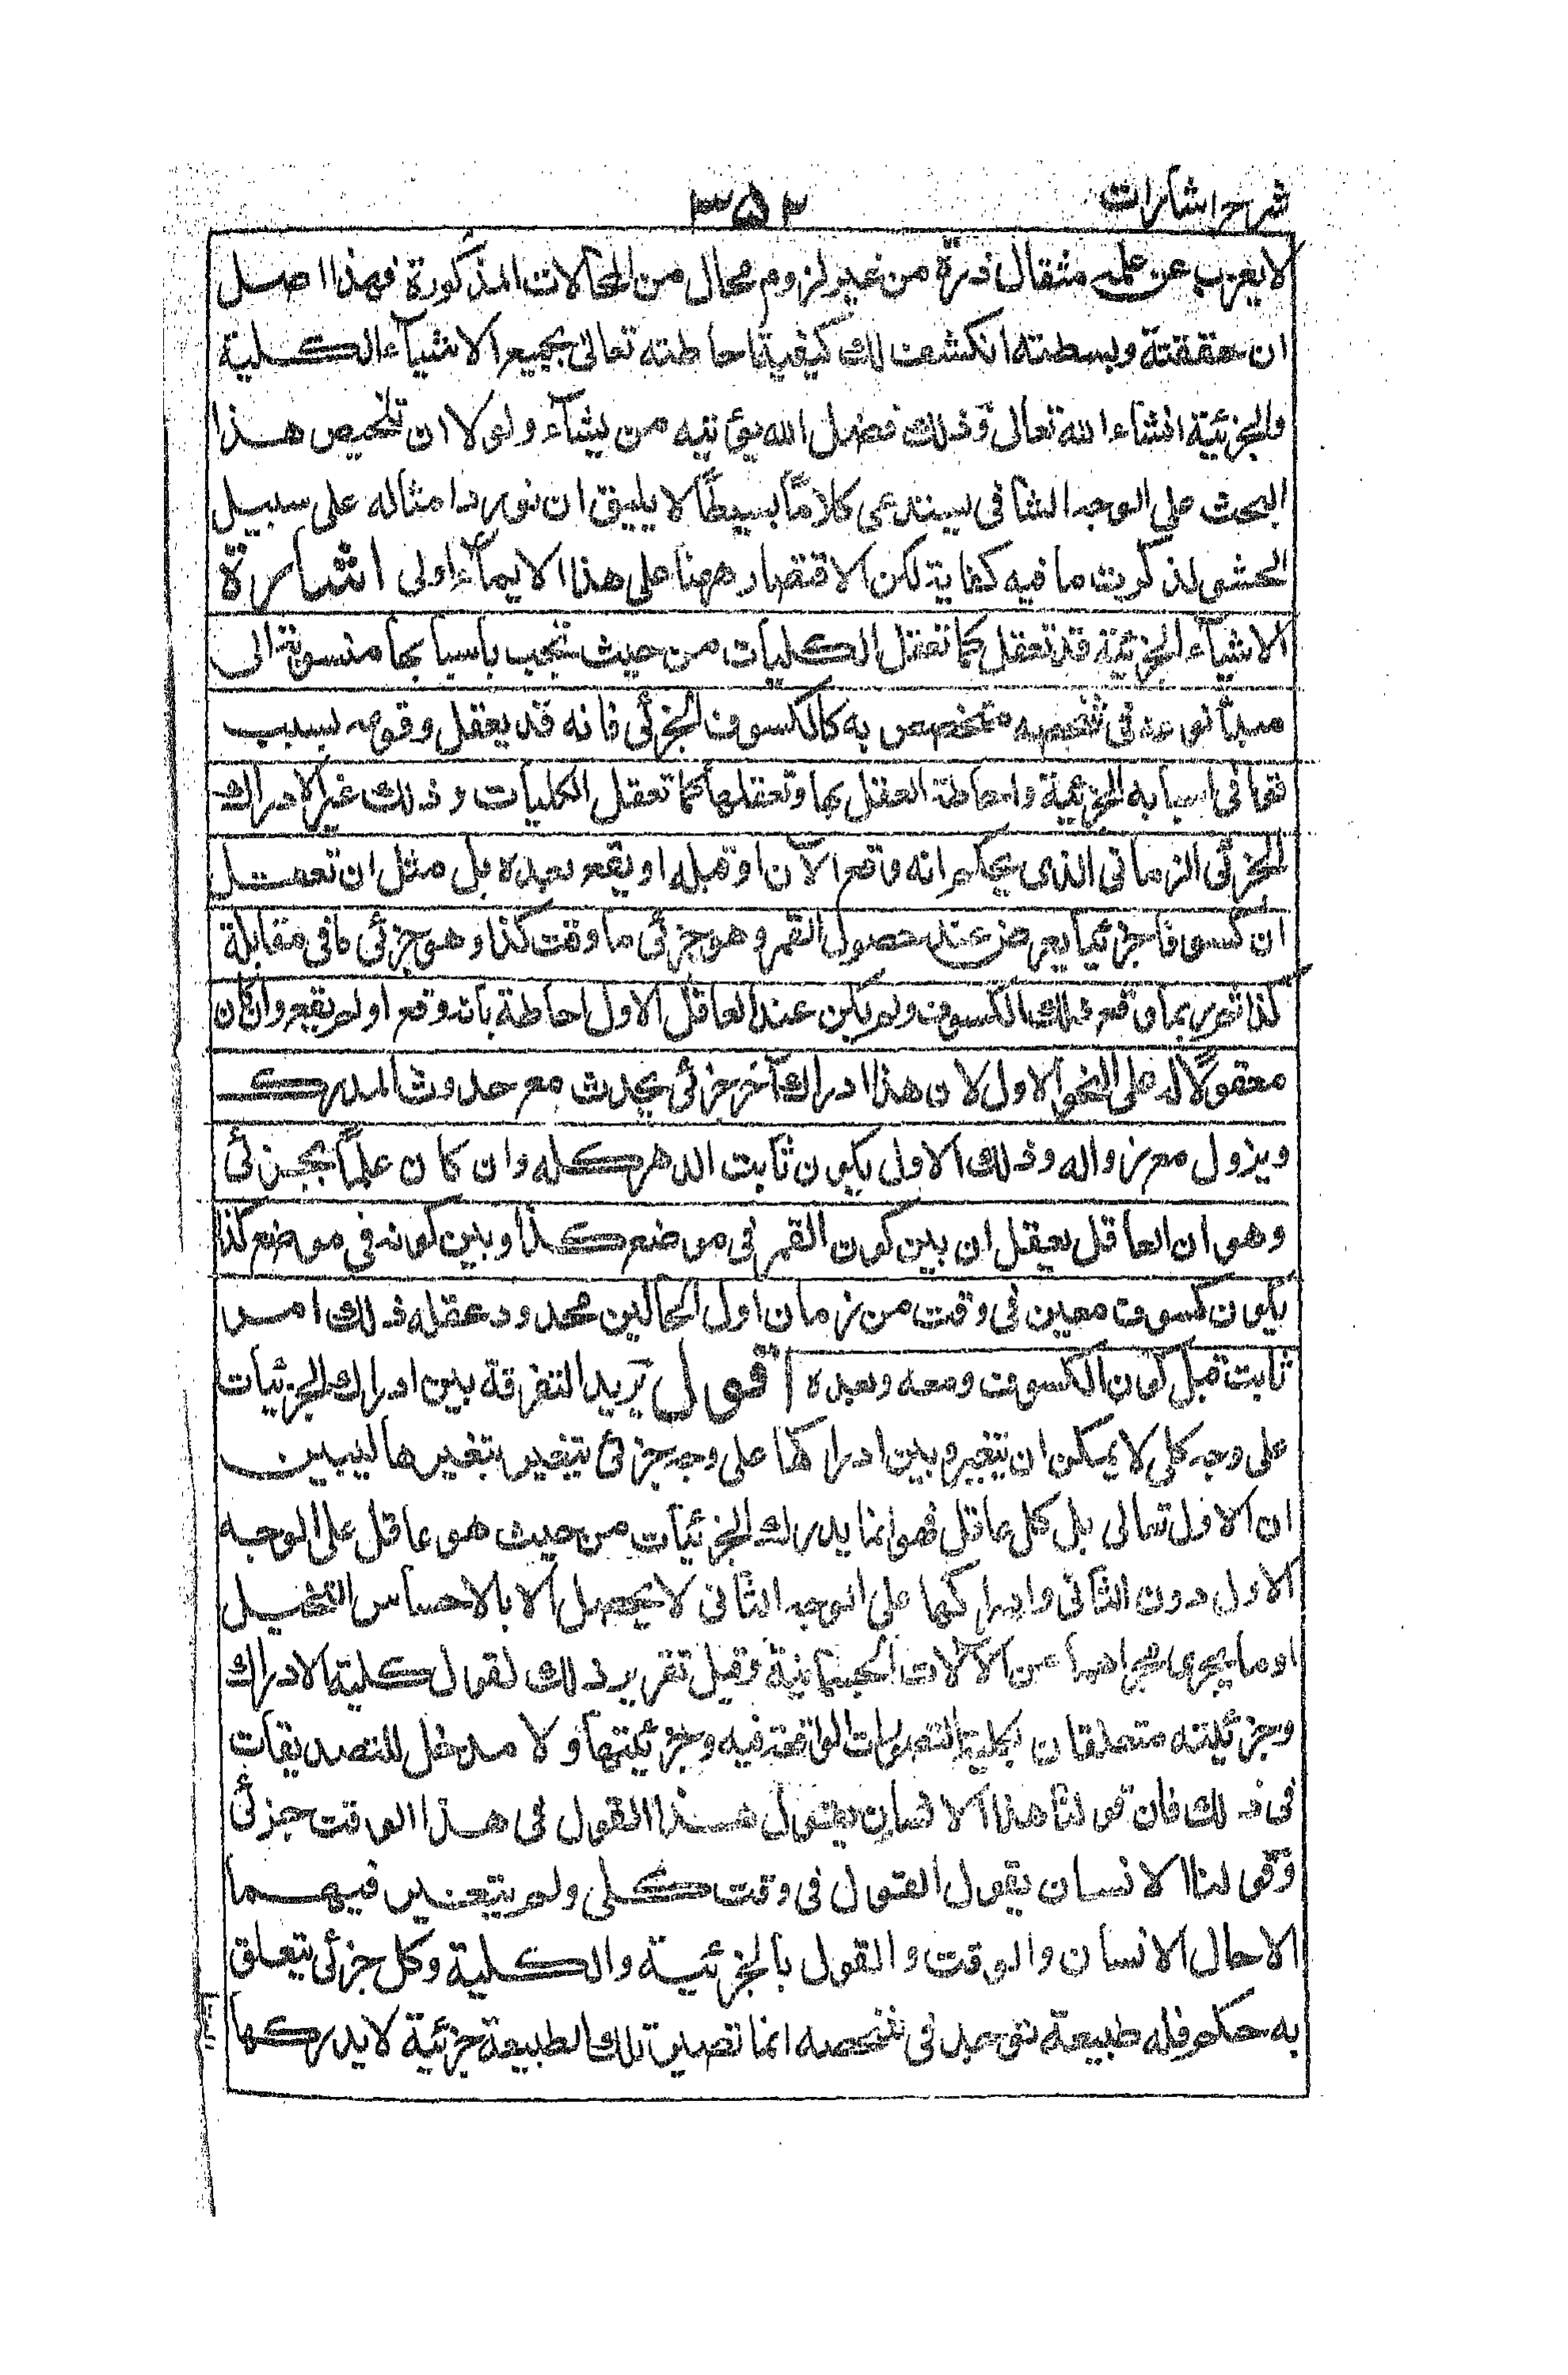 شرح اشارات ٣٥٢
لا يعزب عن علمه مثقال ذرة من غير لزوم محال من المحالات المذكورة فهذا اصل
ان حققته وبسطته انكشف لك كيفية احاطته تعالى بجميع الاشيآء الكلية
والجزئية انشاء الله تعالى وذلك فضل الله يؤتيه من يشآء ولولا ان تلخيص هذا
البحث على الوجه الشافى يستدعى كلامًا بسيطًا لا يليق ان نورد امثاله على سبيل
الحشو لذكرت ما فيه كفاية لكن الاقتصار ههنا على هذا الايمآء اولى اشارة
الاشيآء الجزئية قد تعقل كما تعقل الكليات من حيث تجب باسبابها منسوبة الى
مبدأ نوعه فى شخصه متخصص به كالكسوف الجزئى فانه قد يعقل وقوعه بسبب
توافى اسبابه الجزئية واحاطة العقل بها وتعقلها كما تعقل الكليات وذلك غير الادراك
الجزئى الزمانى الذى يحكم انه وقع الآن او قبله او يقع بعده بل مثل ان تعقل
ان كسوفا جزئيا يعرض عند حصول القمر وهو جزئى ما وقت كذا وهو جزئى ما فى مقابلة
كذا ثم ربما وقع ذلك الكسوف ولم يكن عند العاقل الاول احاطة بانه وقع او لم يقع وان كان
معقولًا له على النحو الاول لان هذا ادراك آخر جزئى يحدث مع حدوث المدرك
ويزول مع زواله وذلك الاول يكون ثابت الدهر كله وان كان علمًا بجزئى
وهو ان العاقل يعقل ان بين كون القمر فى موضع كذا وبين كونه فى موضع كذا
يكون كسوف معين فى وقت من زمان اول الحالين محدود عقله ذلك امر
ثابت قبل كون الكسوف ومعه وبعده اقول يريد التفرقة بين ادراك الجزئيات
على وجه كلى لا يمكن ان يتغير وبين ادراكها على وجه جزئى يتغير بتغيرها ليبين
ان الاول تعالى بل كل عاقل فهو انما يدرك الجزئيات من حيث هو عاقل على الوجه
الاول دون الثانى وادراكها على الوجه الثانى لا يحصل الا بالاحساس التخيل
او ما يجرى مجراهما من الآلات الجسمانية وقيل تقرير ذلك نقول كلية الادراك
وجزئيته متعلقان بكلية التصورات الواقعة فيه وجزئيتها ولا مدخل للتصديقات
فى ذلك فان قولنا هذا الانسان يقول هذا القول فى هذا الوقت جزئى
وقولنا الانسان يقول القول فى وقت كلى ولم يتغير فيهما
الا حال الانسان والوقت والقول بالجزئية والكلية وكل جزئى يتعلق
به حكم فله طبيعة توجد فى شخصه انما تصير تلك الطبيعة جزئية لا يدركها